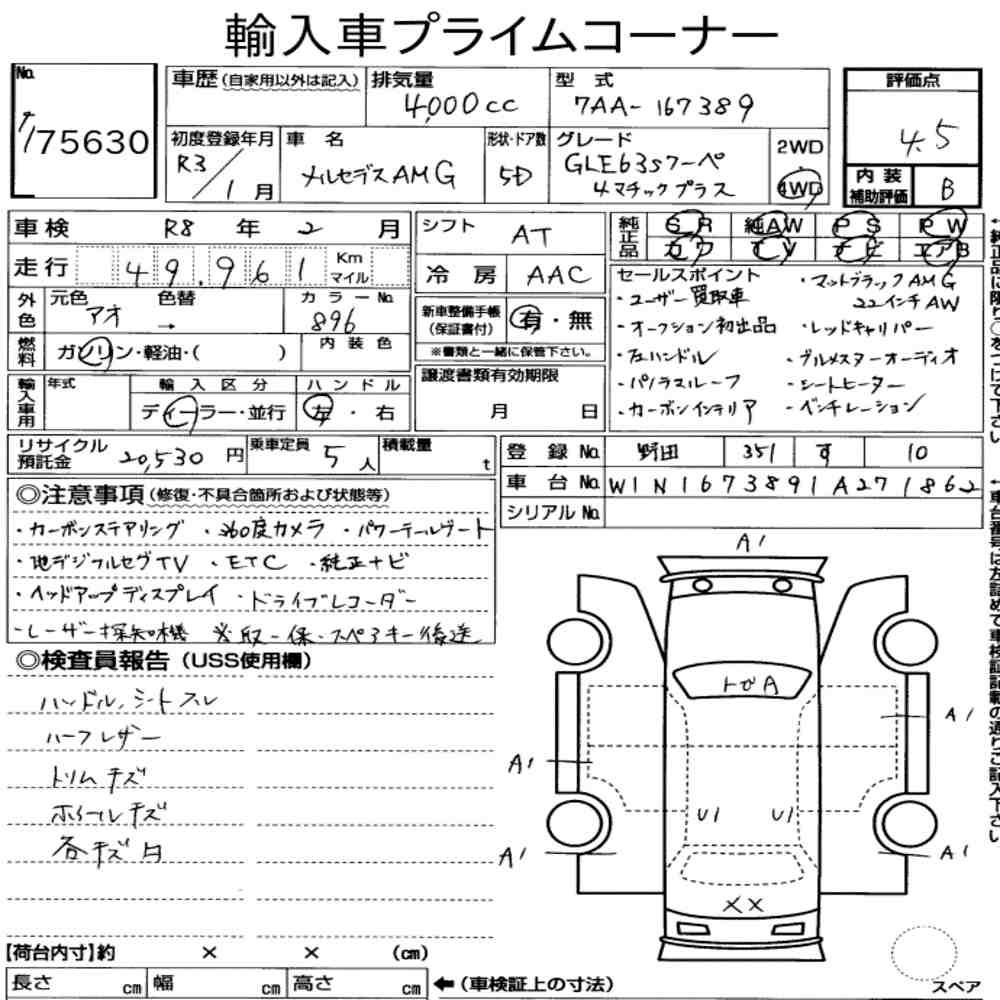 輸入車プライムコーナー
No. 75630
車歴(自家用以外は記入) 排気量 4,000cc 型式 7AA-167389
評価点 4.5
初度登録年月 R3/1月 車名 メルセデスAMG 形状・ドア数 5D グレード GLE63Sクーペ 4マチックプラス 2WD 4WD
内装補助評価 B
車検 R8年2月 シフト AT
純正品 SR 純AW PS PW
カワ TV ナビ エアB
走行 49,961 Km マイル 冷房 AAC
外色 元色 アオ 色替 → カラーNo. 896
新車整備手帳(保証書付) 有・無
※書類と一緒に保管下さい。
燃料 ガソリン・軽油・( ) 内装色
輸入車用 年式 輸入区分 ディーラー・並行 ハンドル 左・右
譲渡書類有効期限 月 日
セールスポイント
・ユーザー買取車
・オークション初出品
・左ハンドル
・パノラマルーフ
・カーボンインテリア
・マットブラックAMG
22インチAW
・レッドキャリパー
・ブルメスターオーディオ
・シートヒーター
・ベンチレーション
リサイクル預託金 20,530円 乗車定員 5人 積載量 t
登録No. 野田 351 す 10
車台No. W1N1673891A271862
シリアルNo.
◎注意事項(修復・不具合箇所および状態等)
・カーボンステアリング ・360度カメラ ・パワーテールゲート
・地デジフルセグTV ・ETC ・純正ナビ
・ヘッドアップディスプレイ ・ドライブレコーダー
・レーザー探知機 ※取・保・スペアキー後送
◎検査員報告(USS使用欄)
ハンドル、シートスレ
ハーフレザー
トリムキズ
ホイールキズ
各キズ有
A1
トビA
A1
A1
U1 U1
A1
A1
XX
スペア
【荷台内寸】約 × × (cm)
長さ cm 幅 cm 高さ cm ←(車検証上の寸法)
←純正品に限り○をつけて下さい
←車台番号は左詰めで車検証記載の通りご記入下さい